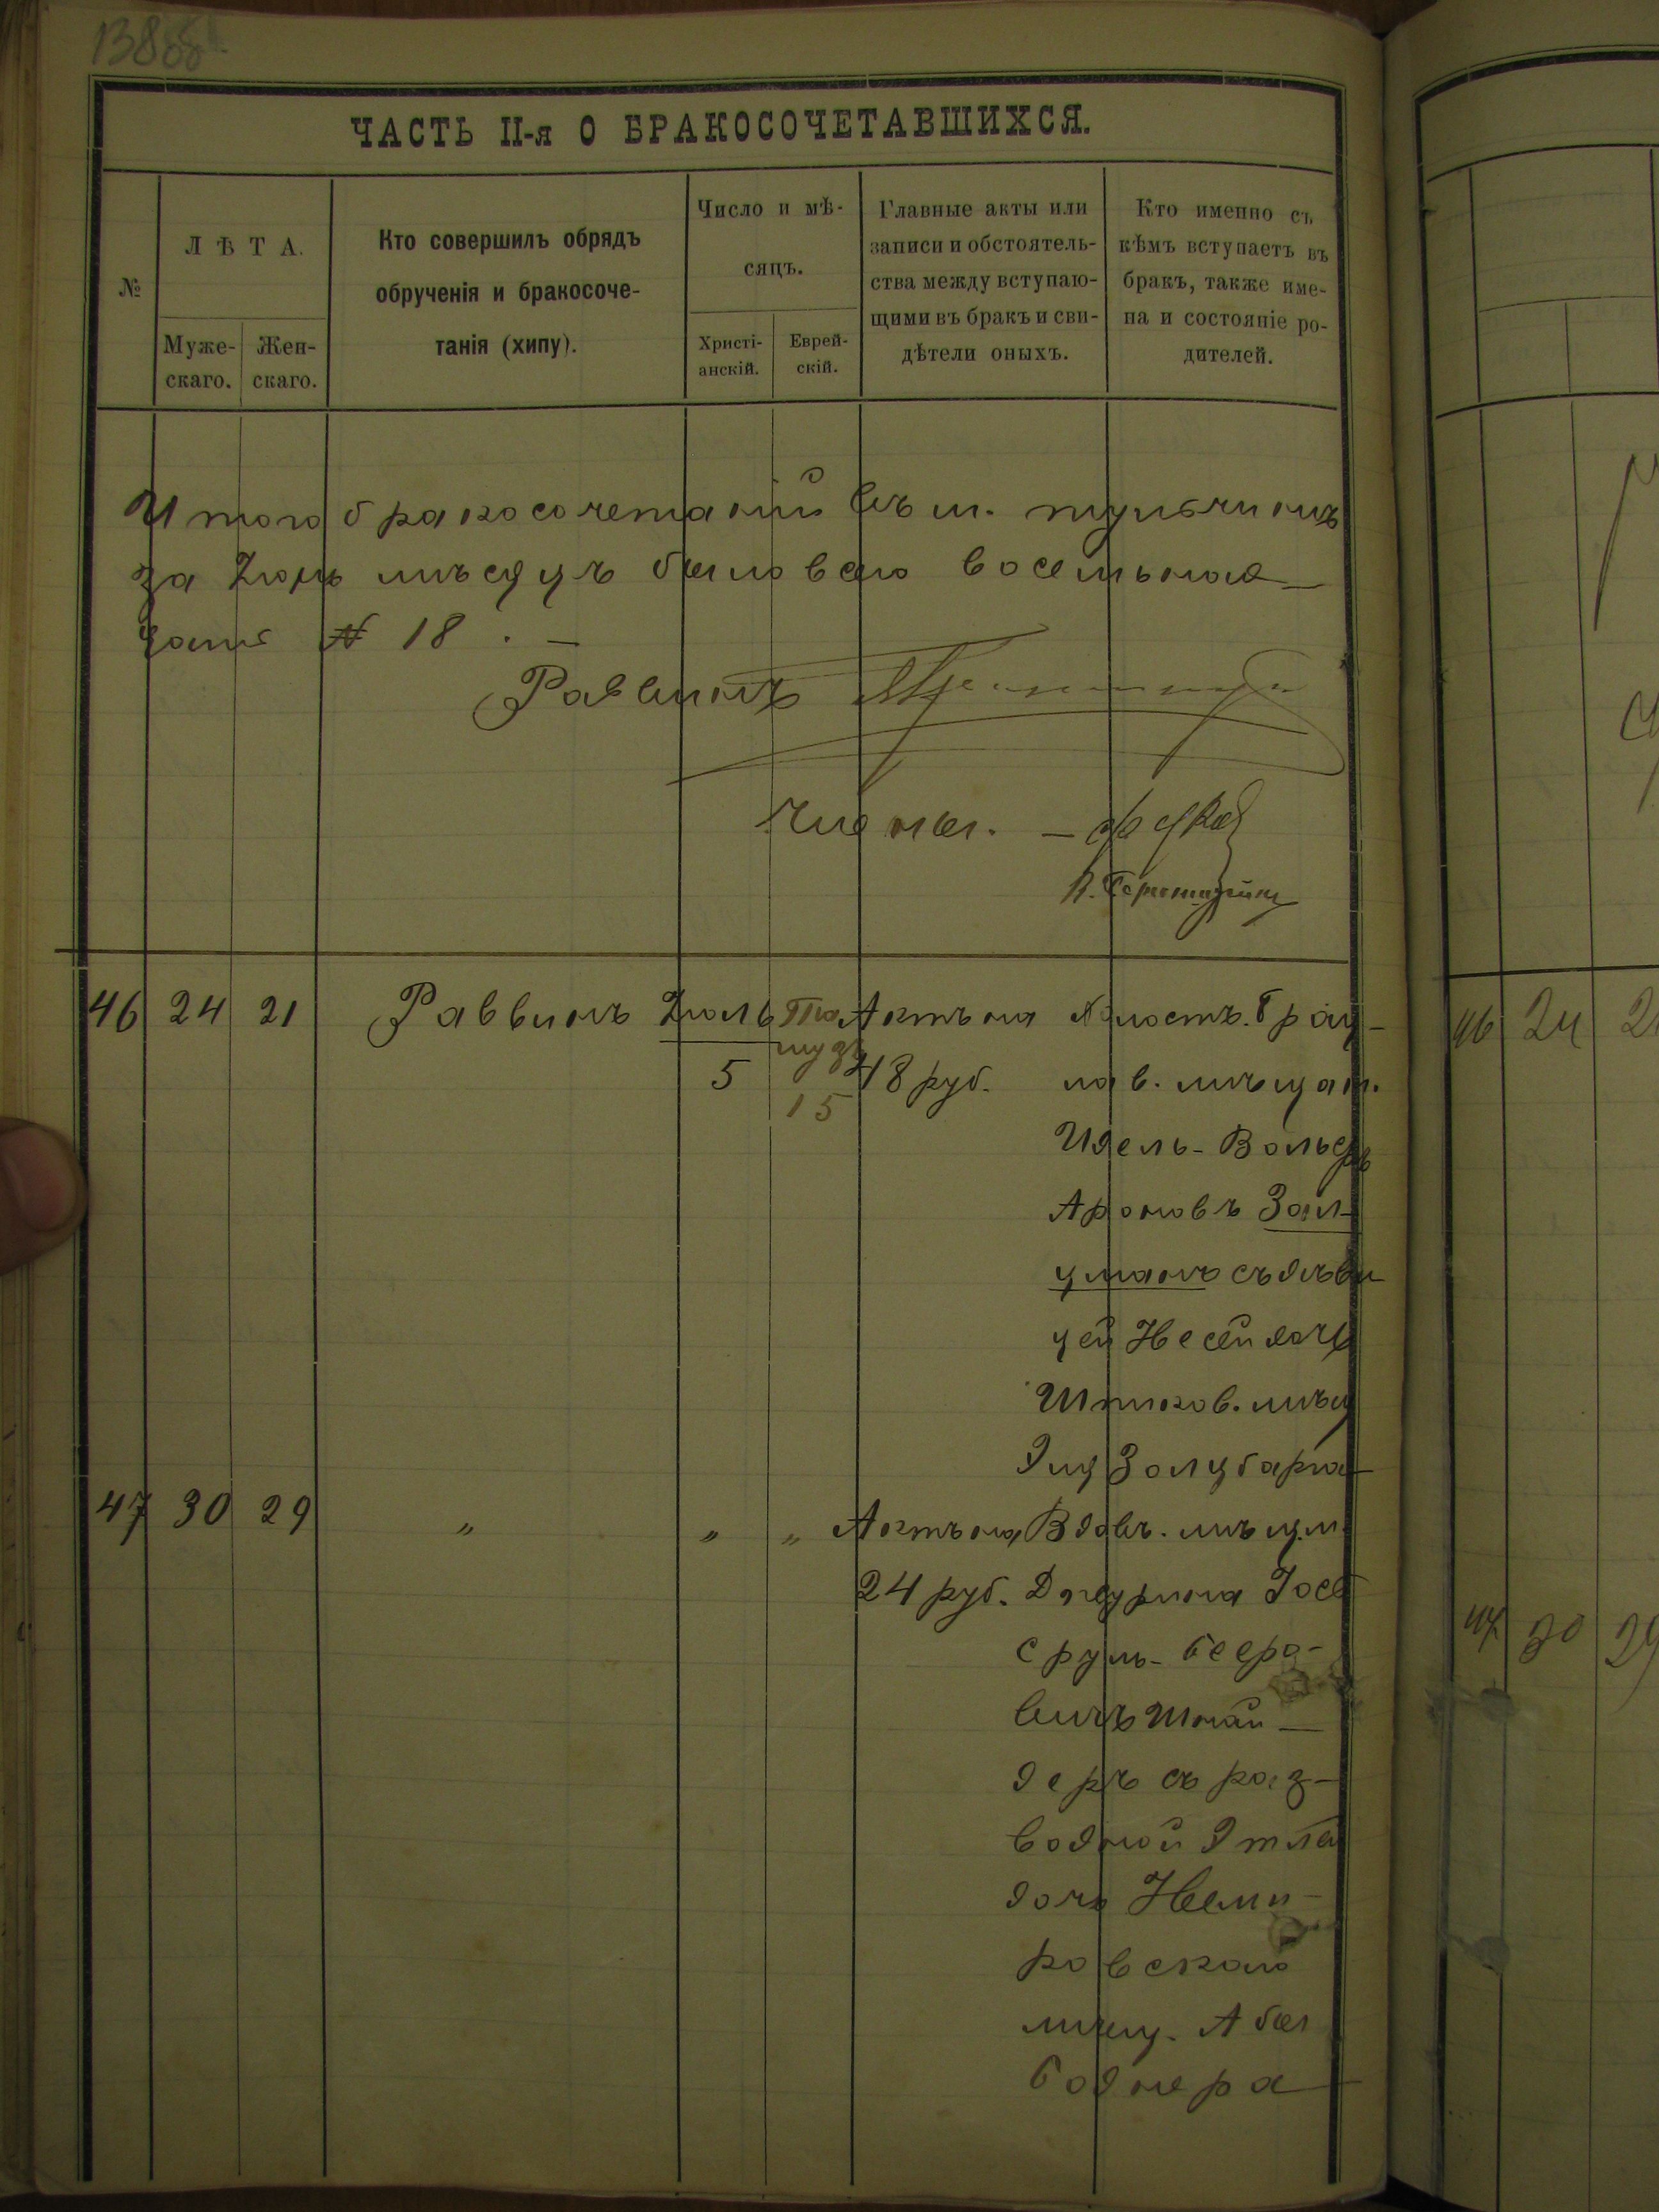 138об.
ЧАСТЬ II-я О БРАКОСОЧЕТАВШИХСЯ.
№
ЛѢТА.
Муже-
скаго.
Жен-
скаго.
Кто совершилъ обрядъ
обрученія и бракосоче-
танія (хипу).
Число и мѣ-
сяцъ.
Христі-
анскій.
Еврей-
скій.
Главные акты или
записи и обстоятель-
ства между вступаю-
щими въ бракъ и сви-
дѣтели оныхъ.
Кто именно съ
кѣмъ вступаетъ въ
бракъ, также име-
на и состояніе ро-
дителей.
Итого бракосочетаній въ м. Тульчинѣ
за Іюнь мѣсяцъ было всего восемьнад-
цать № 18. —
Раввинъ
Члены. —
46 24 21 Раввинъ Іюль Та Актъ на Холостъ. Брац-
5 музъ 48 руб. лав. мѣщан.
15
Идель-Вольфъ
Ароновъ Зал-
цманъ съ дѣви-
цей Несей дочь
Шпиков. мѣщ
Эли Золцбарга
47 30 29 " " " Актъ на Вдовъ. мѣщ. м.
24 руб. Джурина Іос
сруль-Беро-
вичъ Шнай-
деръ съ раз-
водной Этлей
дочь Неми-
ровскаго
мѣщ. Абы
Боднера
46 24 2
47 30 29